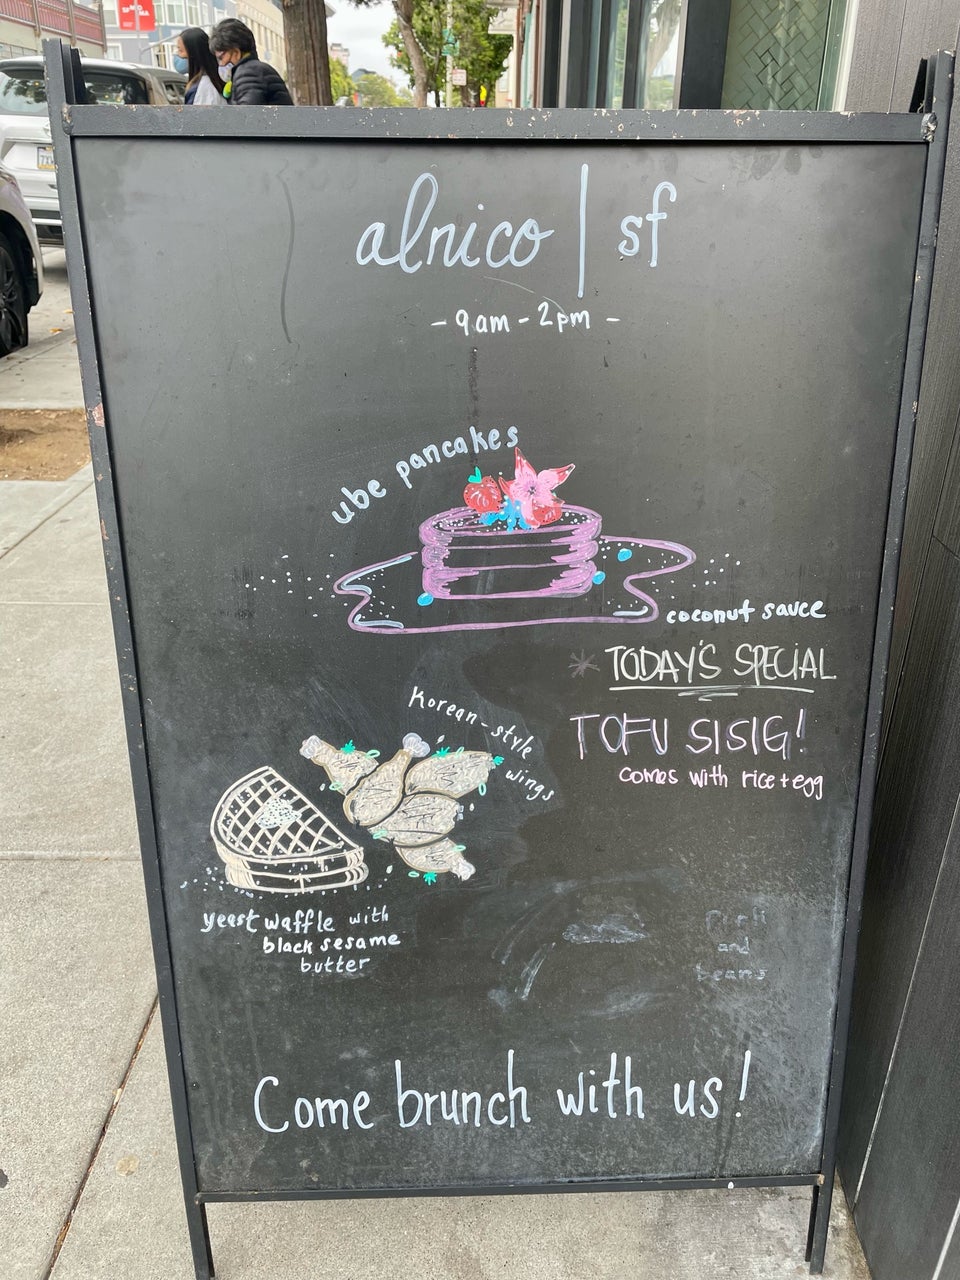 alnico | sf
- 9am - 2pm -
ube pancakes
coconut sauce
* TODAY'S SPECIAL
TOFU SISIG!
comes with rice + egg
Korean-style
wings
yeast waffle with
black sesame
butter
and
beans
Come brunch with us!